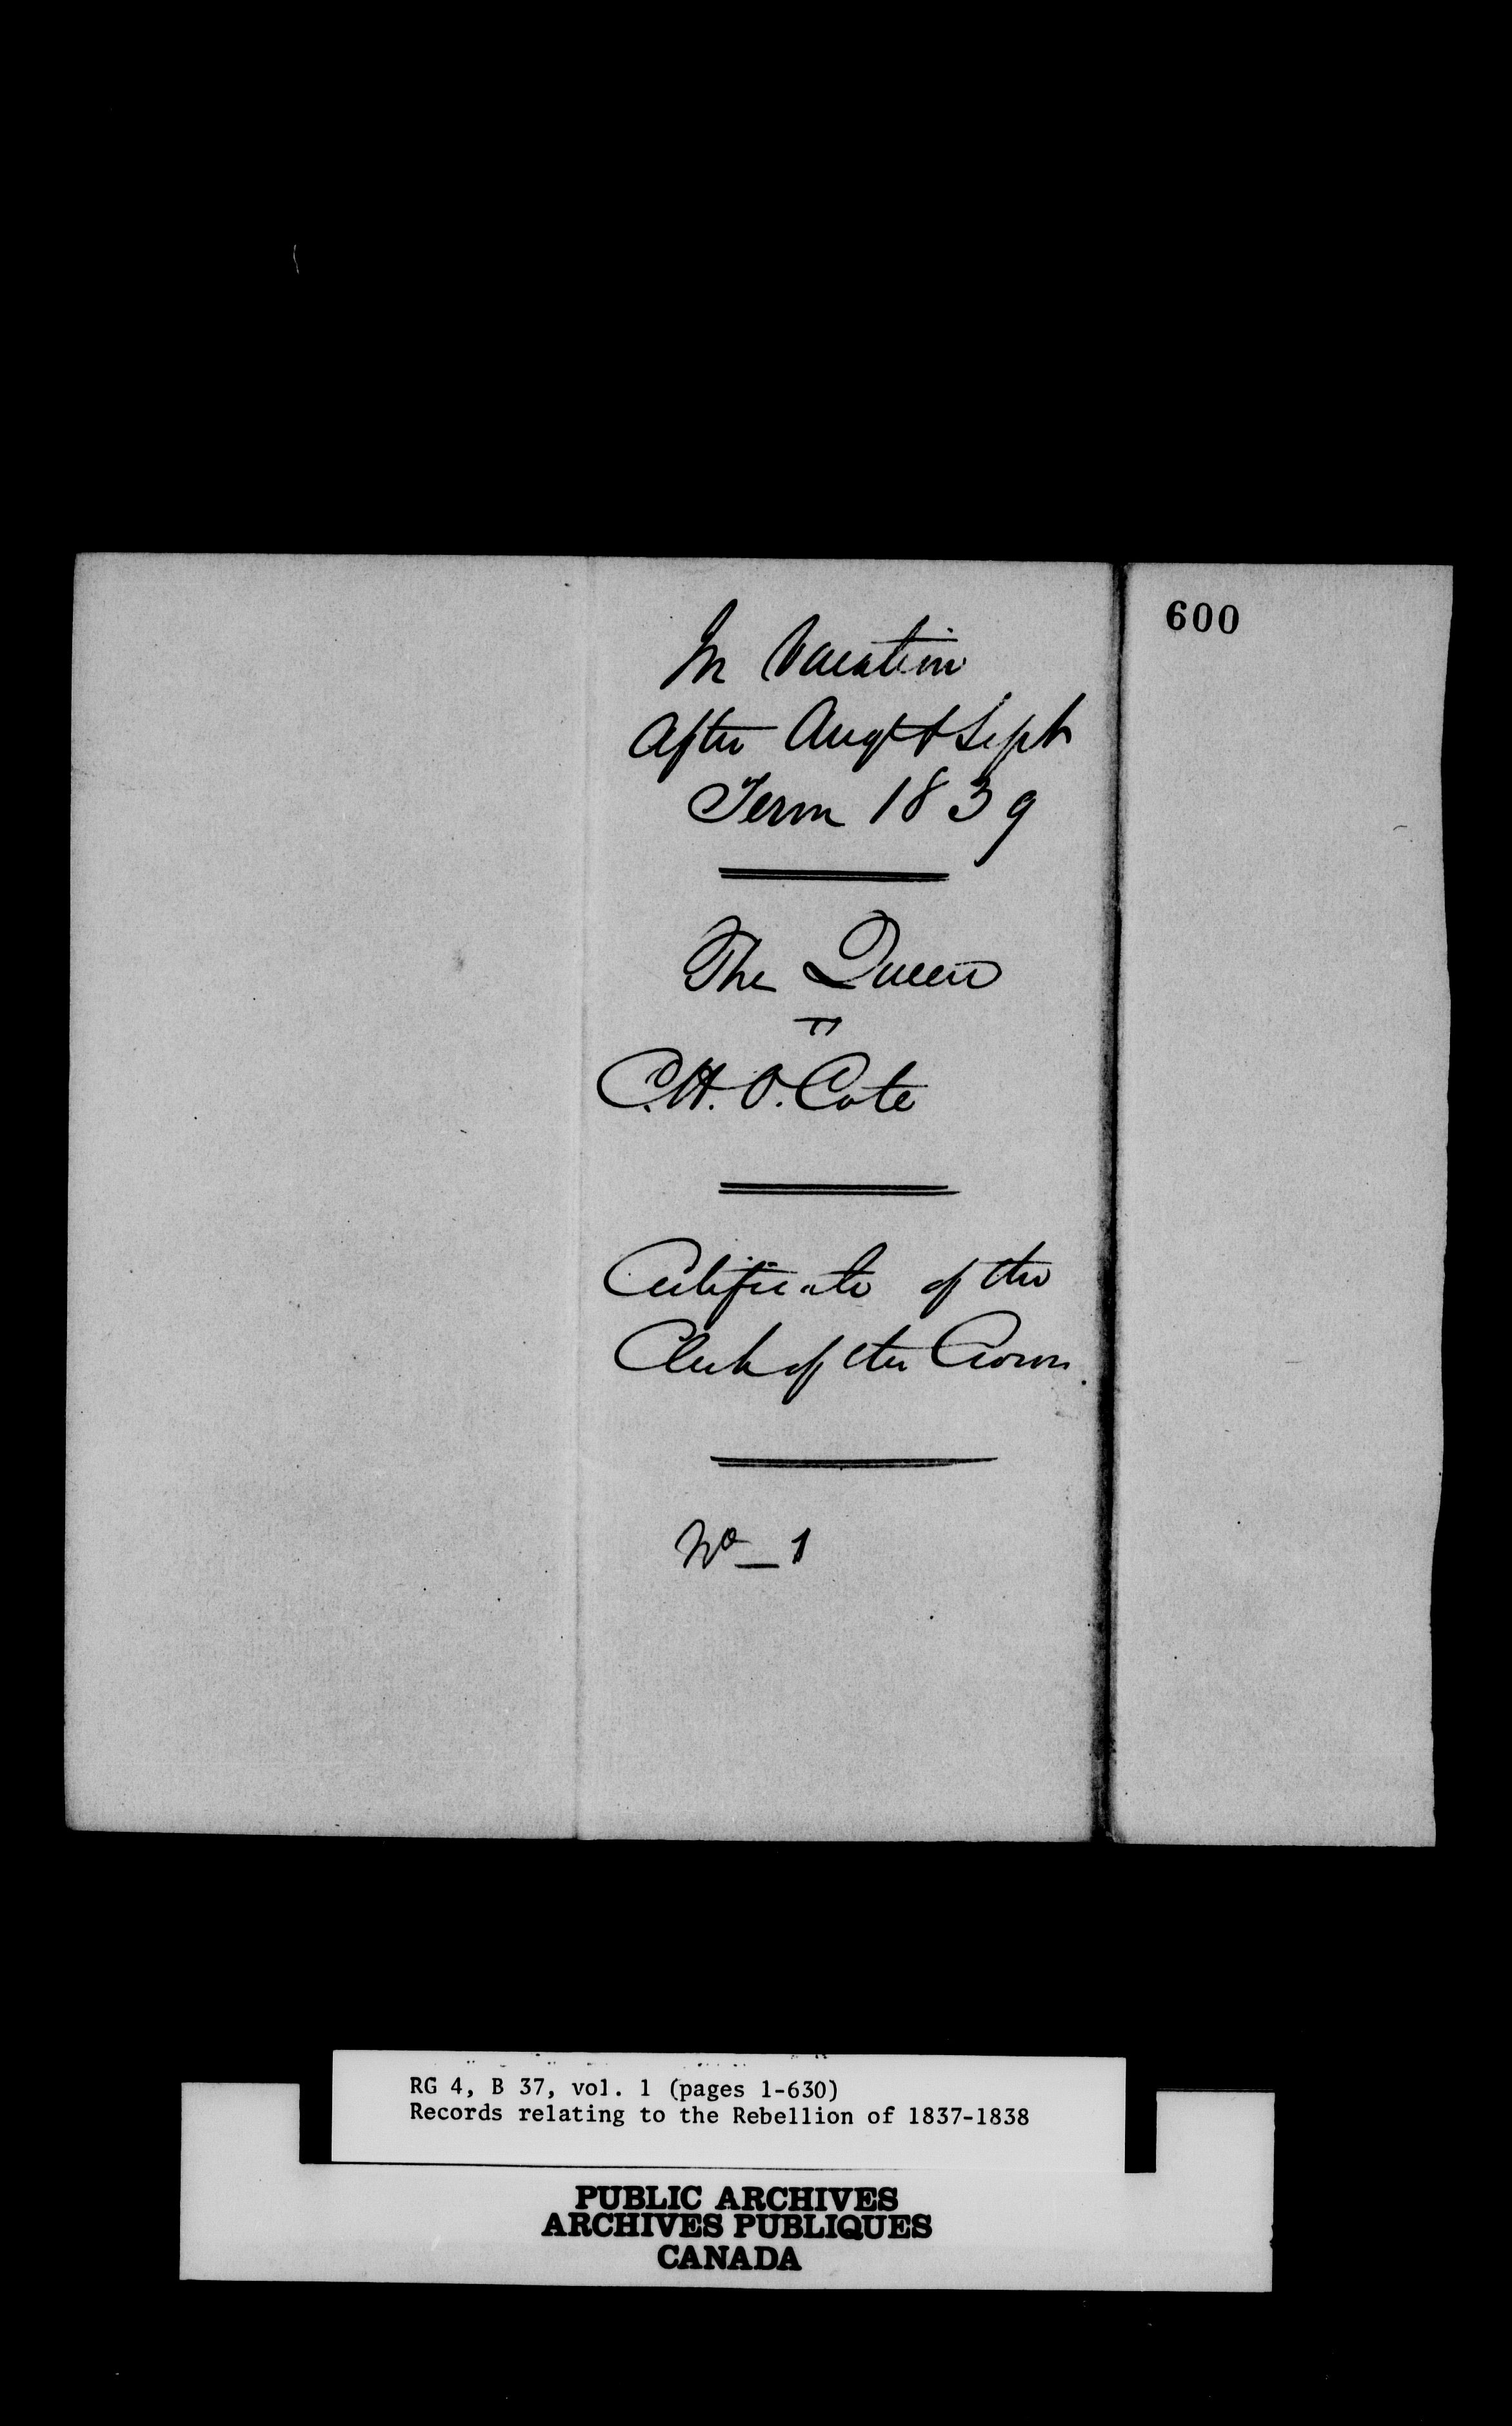 600
In Vacation
After Augt & Sept
Term 1839
The Queen
vs
C. H. O. Cote
Certificate of the
Clerk of the Crown.
No_1
RG 4, B 37, vol. 1 (pages 1-630)
Records relating to the Rebellion of 1837-1838
PUBLIC ARCHIVES
ARCHIVES PUBLIQUES
CANADA